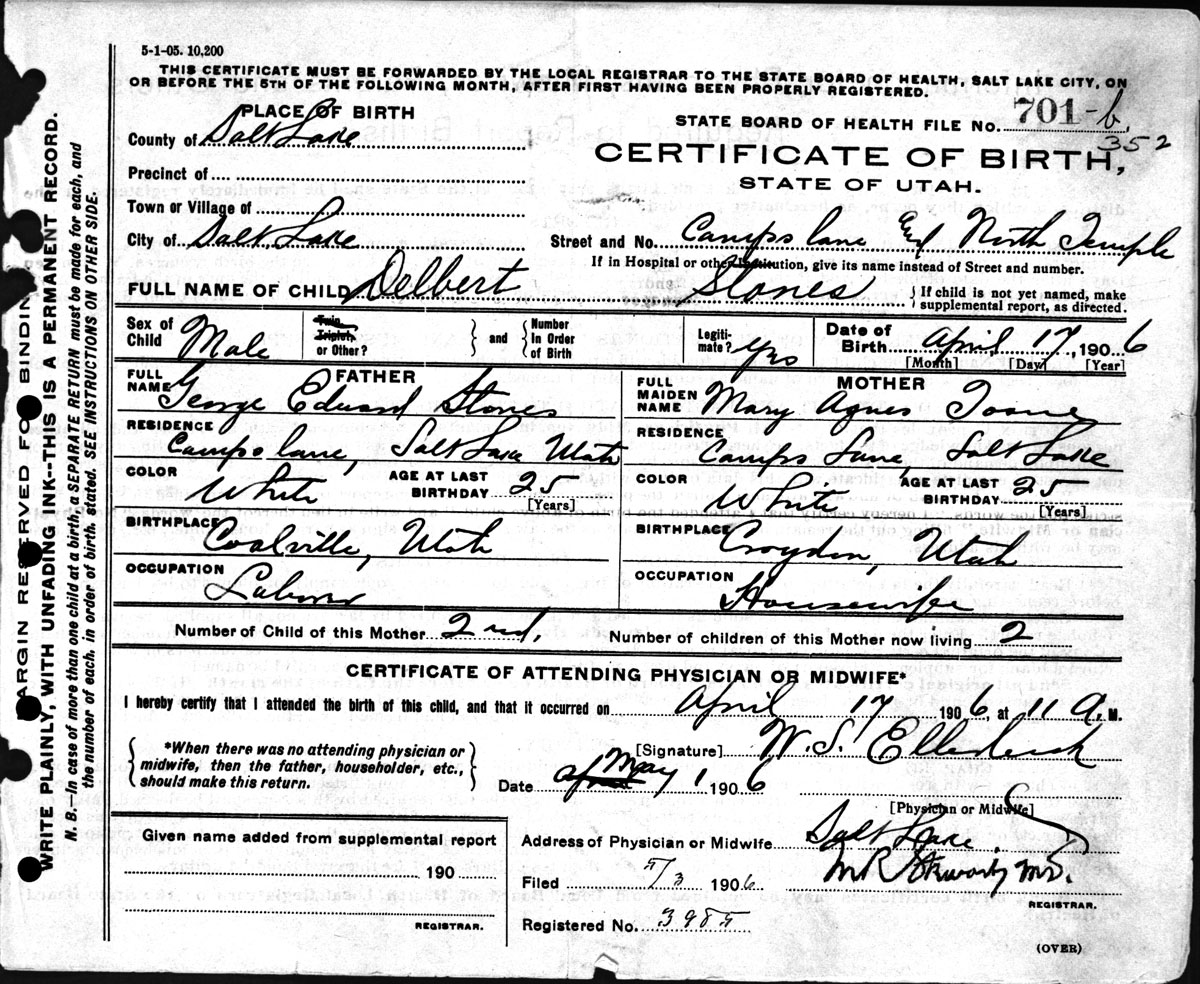 5-1-05. 10,200
THIS CERTIFICATE MUST BE FORWARDED BY THE LOCAL REGISTRAR TO THE STATE BOARD OF HEALTH, SALT LAKE CITY, ON
OR BEFORE THE 5TH OF THE FOLLOWING MONTH, AFTER FIRST HAVING BEEN PROPERLY REGISTERED.
PLACE OF BIRTH
County of Salt Lake
Precinct of
Town or Village of
City of Salt Lake
STATE BOARD OF HEALTH FILE No. 701-b
352
CERTIFICATE OF BIRTH,
STATE OF UTAH.
Street and No. Camps lane End North Temple
If in Hospital or other Institution, give its name instead of Street and number.
FULL NAME OF CHILD Delbert Stones { If child is not yet named, make
supplemental report, as directed.
Sex of Child Male
Twin, Triplet, or Other? } and { Number In Order of Birth
Legiti-mate? Yes
Date of Birth April 17, 1906
[Month] [Day] [Year]
FATHER
FULL NAME George Edward Stones
RESIDENCE Camps lane, Salt Lake Utah
COLOR White AGE AT LAST BIRTHDAY 25
[Years]
BIRTHPLACE Coalville, Utah
OCCUPATION Laborer
MOTHER
FULL MAIDEN NAME Mary Agnes Toone
RESIDENCE Camps Lane, Salt Lake
COLOR White AGE AT LAST BIRTHDAY 25
[Years]
BIRTHPLACE Croyden, Utah
OCCUPATION Housewife
Number of Child of this Mother 2nd. Number of children of this Mother now living 2
CERTIFICATE OF ATTENDING PHYSICIAN OR MIDWIFE*
I hereby certify that I attended the birth of this child, and that it occurred on April 17 1906, at 11 a. M.
{ *When there was no attending physician or
midwife, then the father, householder, etc.,
should make this return. }
[Signature] W. S. Ellerbeck
Date May 1 1906
[Physician or Midwife]
Given name added from supplemental report
190
REGISTRAR.
Address of Physician or Midwife Salt Lake
Filed 5/3 1906
M.D.
REGISTRAR.
Registered No. 3985
(OVER)
MARGIN RESERVED FOR BINDING
WRITE PLAINLY, WITH UNFADING INK--THIS IS A PERMANENT RECORD.
N. B.--In case of more than one child at a birth, a SEPARATE RETURN must be made for each, and
the number of each, in order of birth, stated. SEE INSTRUCTIONS ON OTHER SIDE.